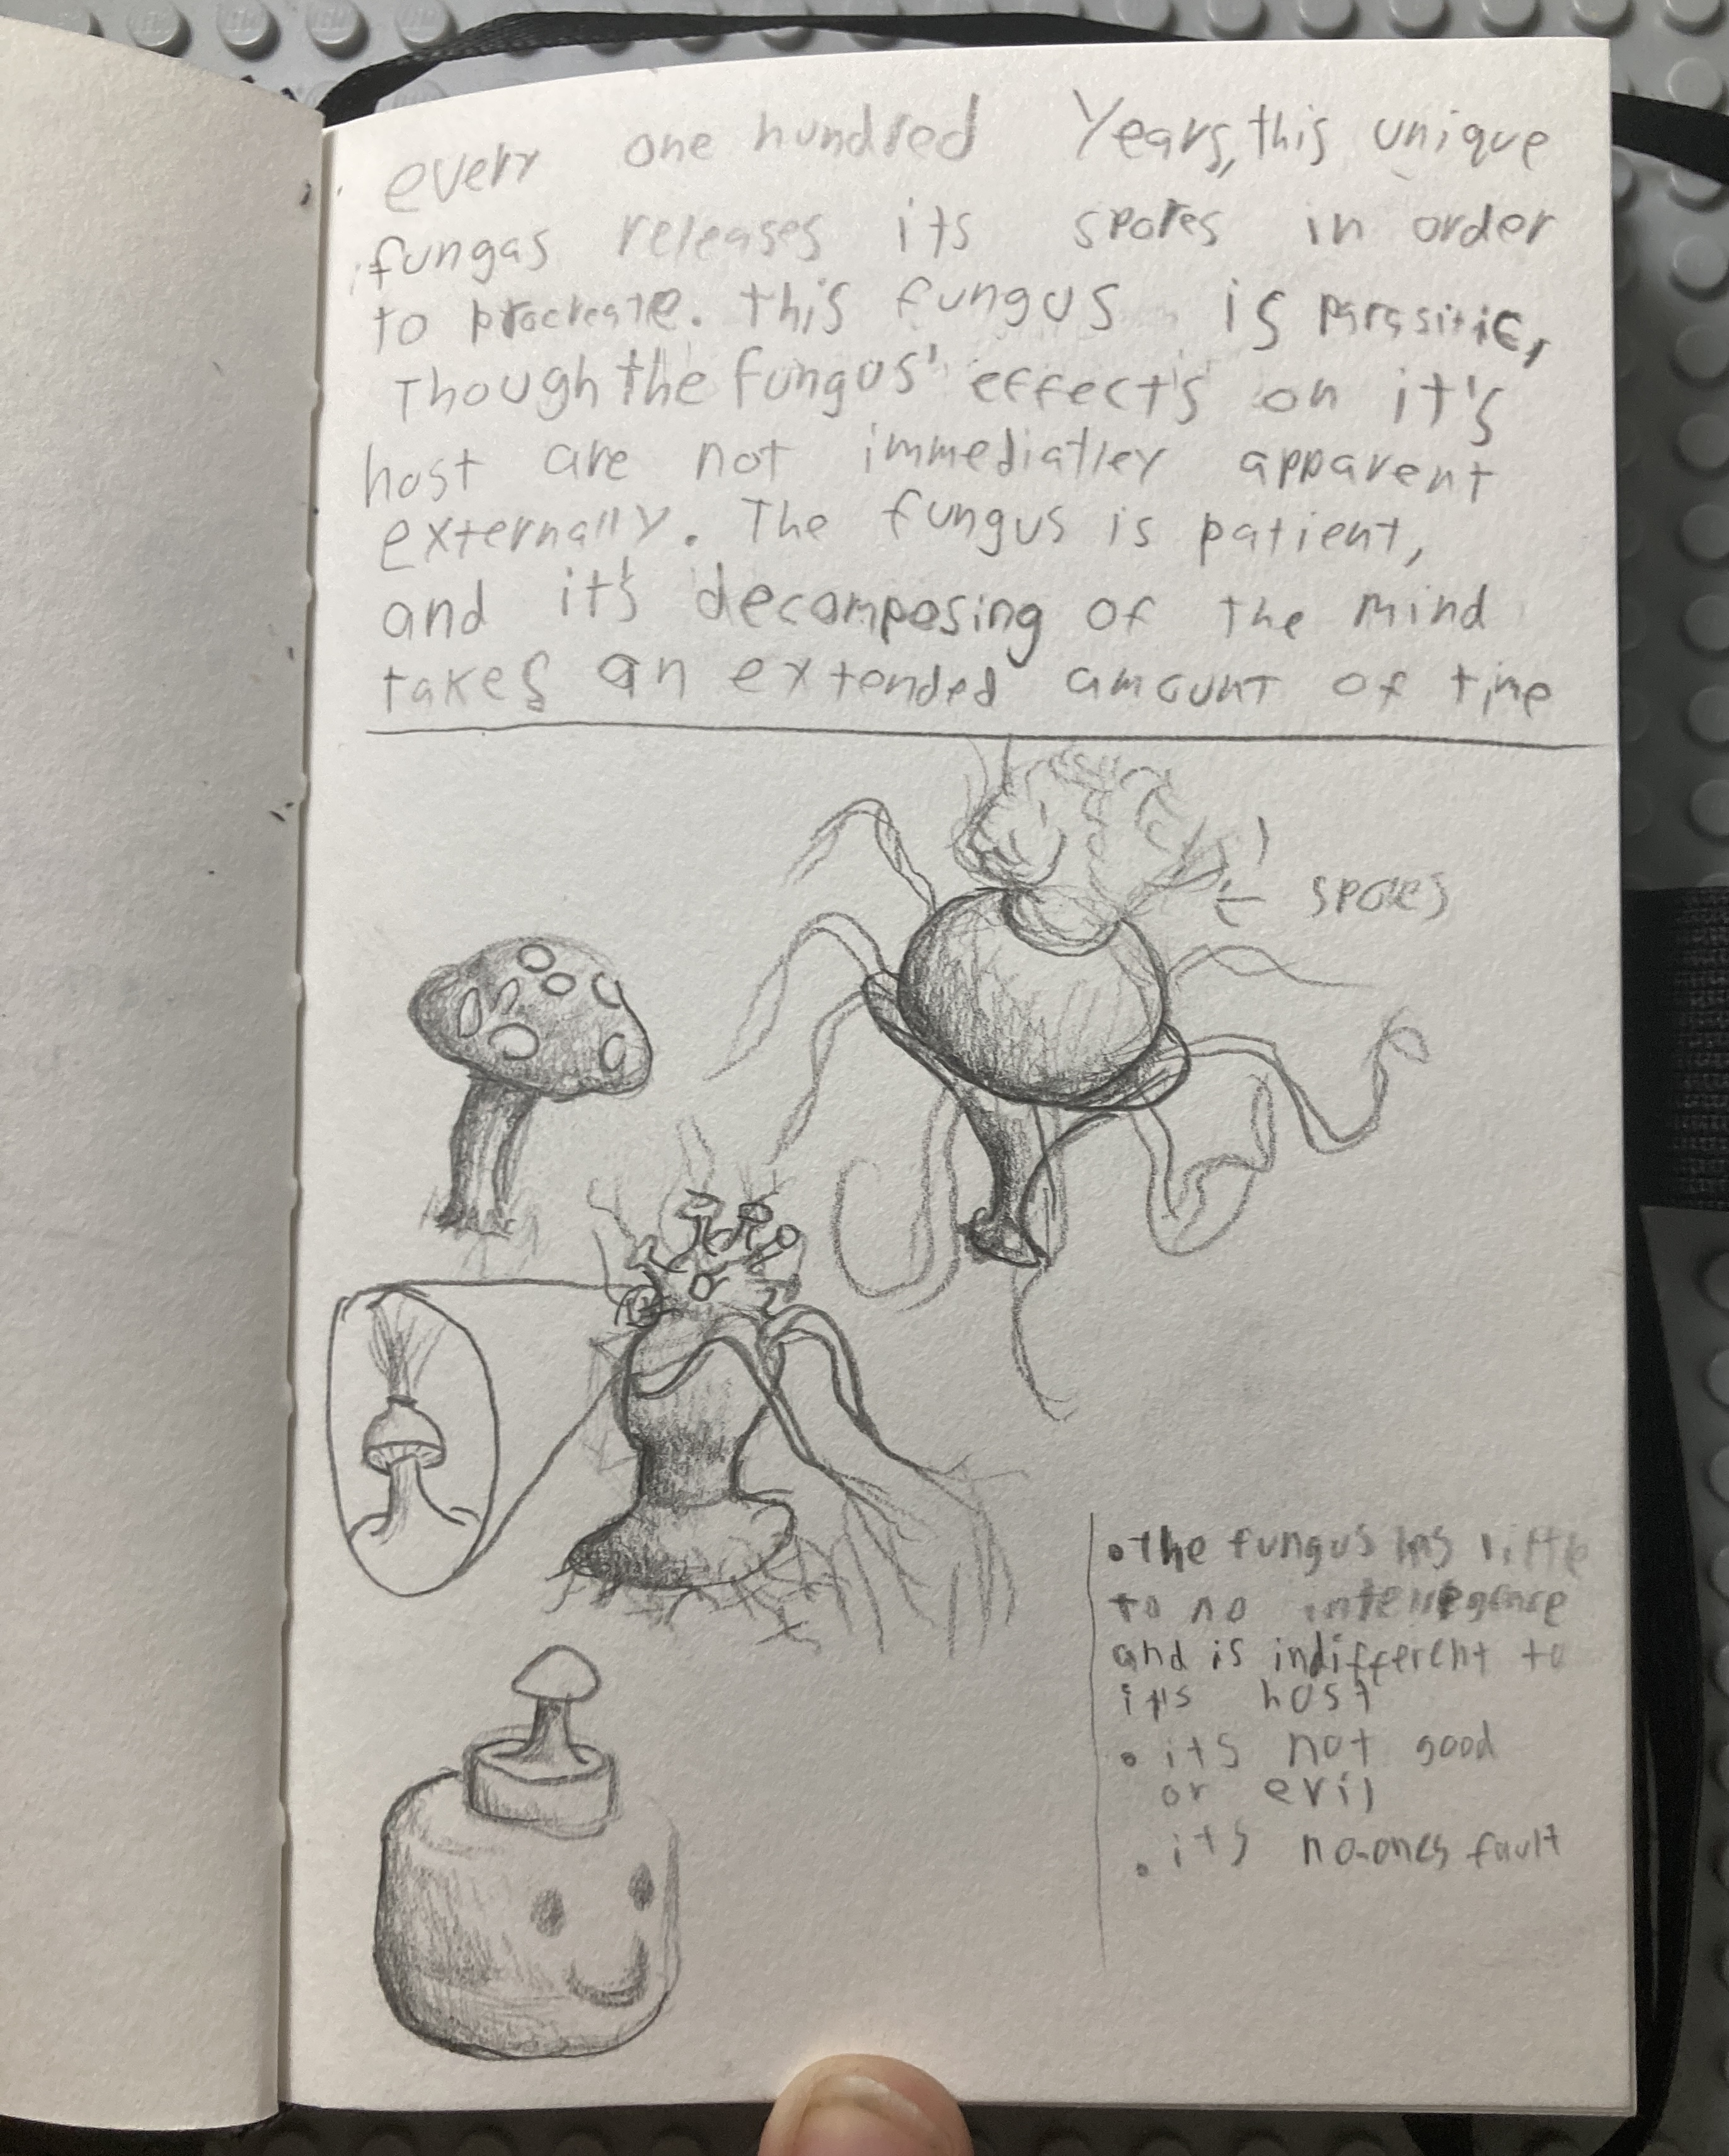 every one hundred Years, this unique
fungas releases its spores in order
to procreate. this fungus is parasitic,
Though the fungus' effect's on it's
host are not immediatley apparent
externally. The fungus is patient,
and it's decomposing of the mind
takes an extended amount of time
← spores
• the fungus has little
to no intelligence
and is indifferent to
its host
• its not good
or evil
• its no-ones fault